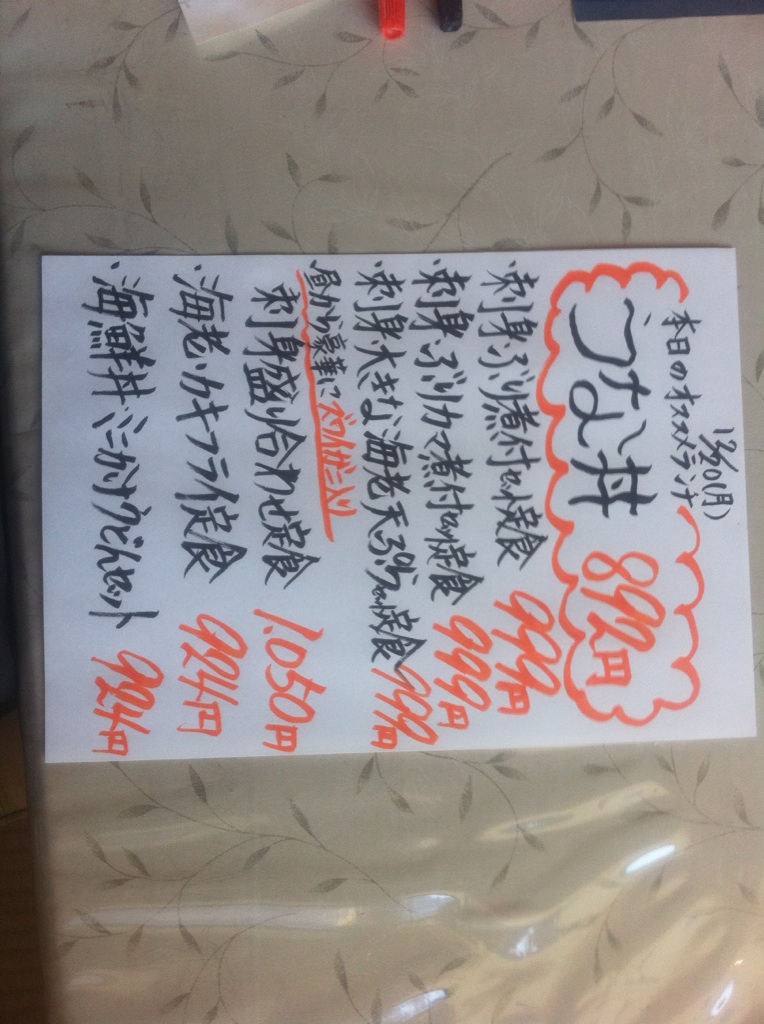 12/20(月)
本日のオススメランチ
うな丼 892円
・刺身・ぶり煮付け定食 999円
・刺身・ぶりカマ煮付け定食 999円
・刺身・大きな海老天ぷら定食 999円
・昼から豪華にズワイガニ入り
刺身盛り合わせ定食 1,050円
・海老・カキフライ定食 924円
・海鮮丼・ミニかけうどんセット 924円